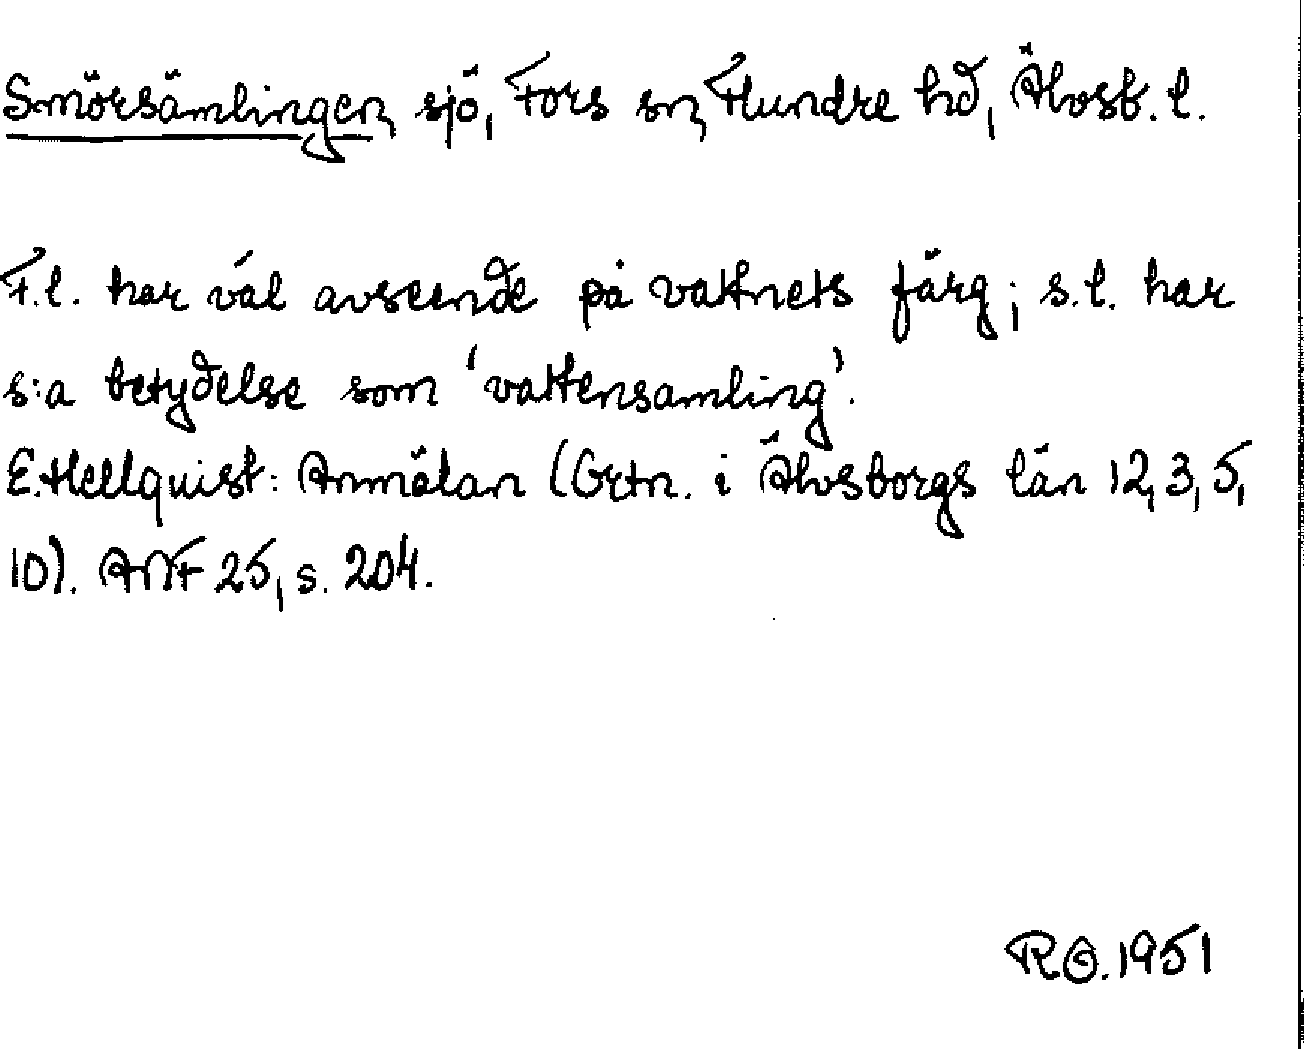 Smörsämlingen, sjö, Fors sn, Flundre hd, Älvsb. l.
F.l. har väl avseende på vattnets färg; s.l. har
s:a betydelse som 'vattensamling'.
E.Hellquist: Anmälan (Ortn. i Älvsborgs län 12, 3, 5,
10). ANF 25, s. 204.
RO. 1951